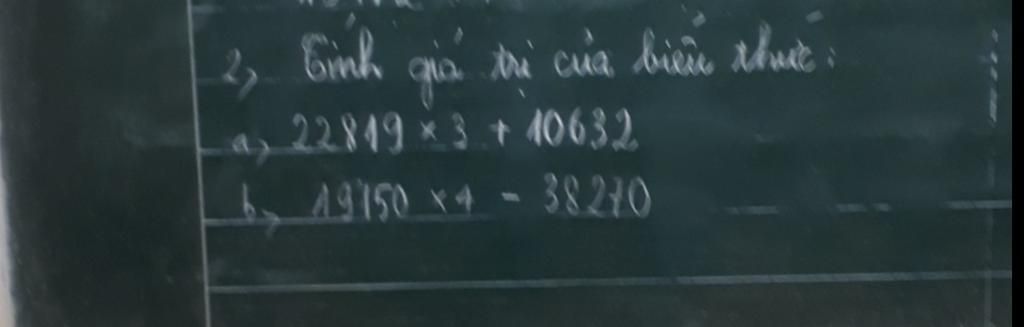 2, Tính giá trị của biểu thức:
a, 22819 × 3 + 10632
b, 19150 × 4 - 38270